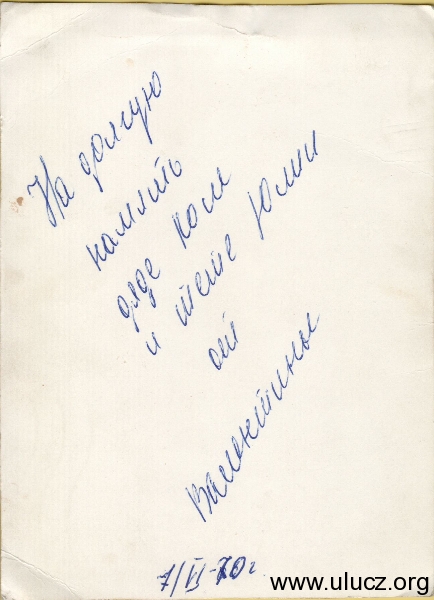 На долгую
память
дяде Коле
и тете Юлии
от
Валентины
7/VI-70 г
www.ulucz.org